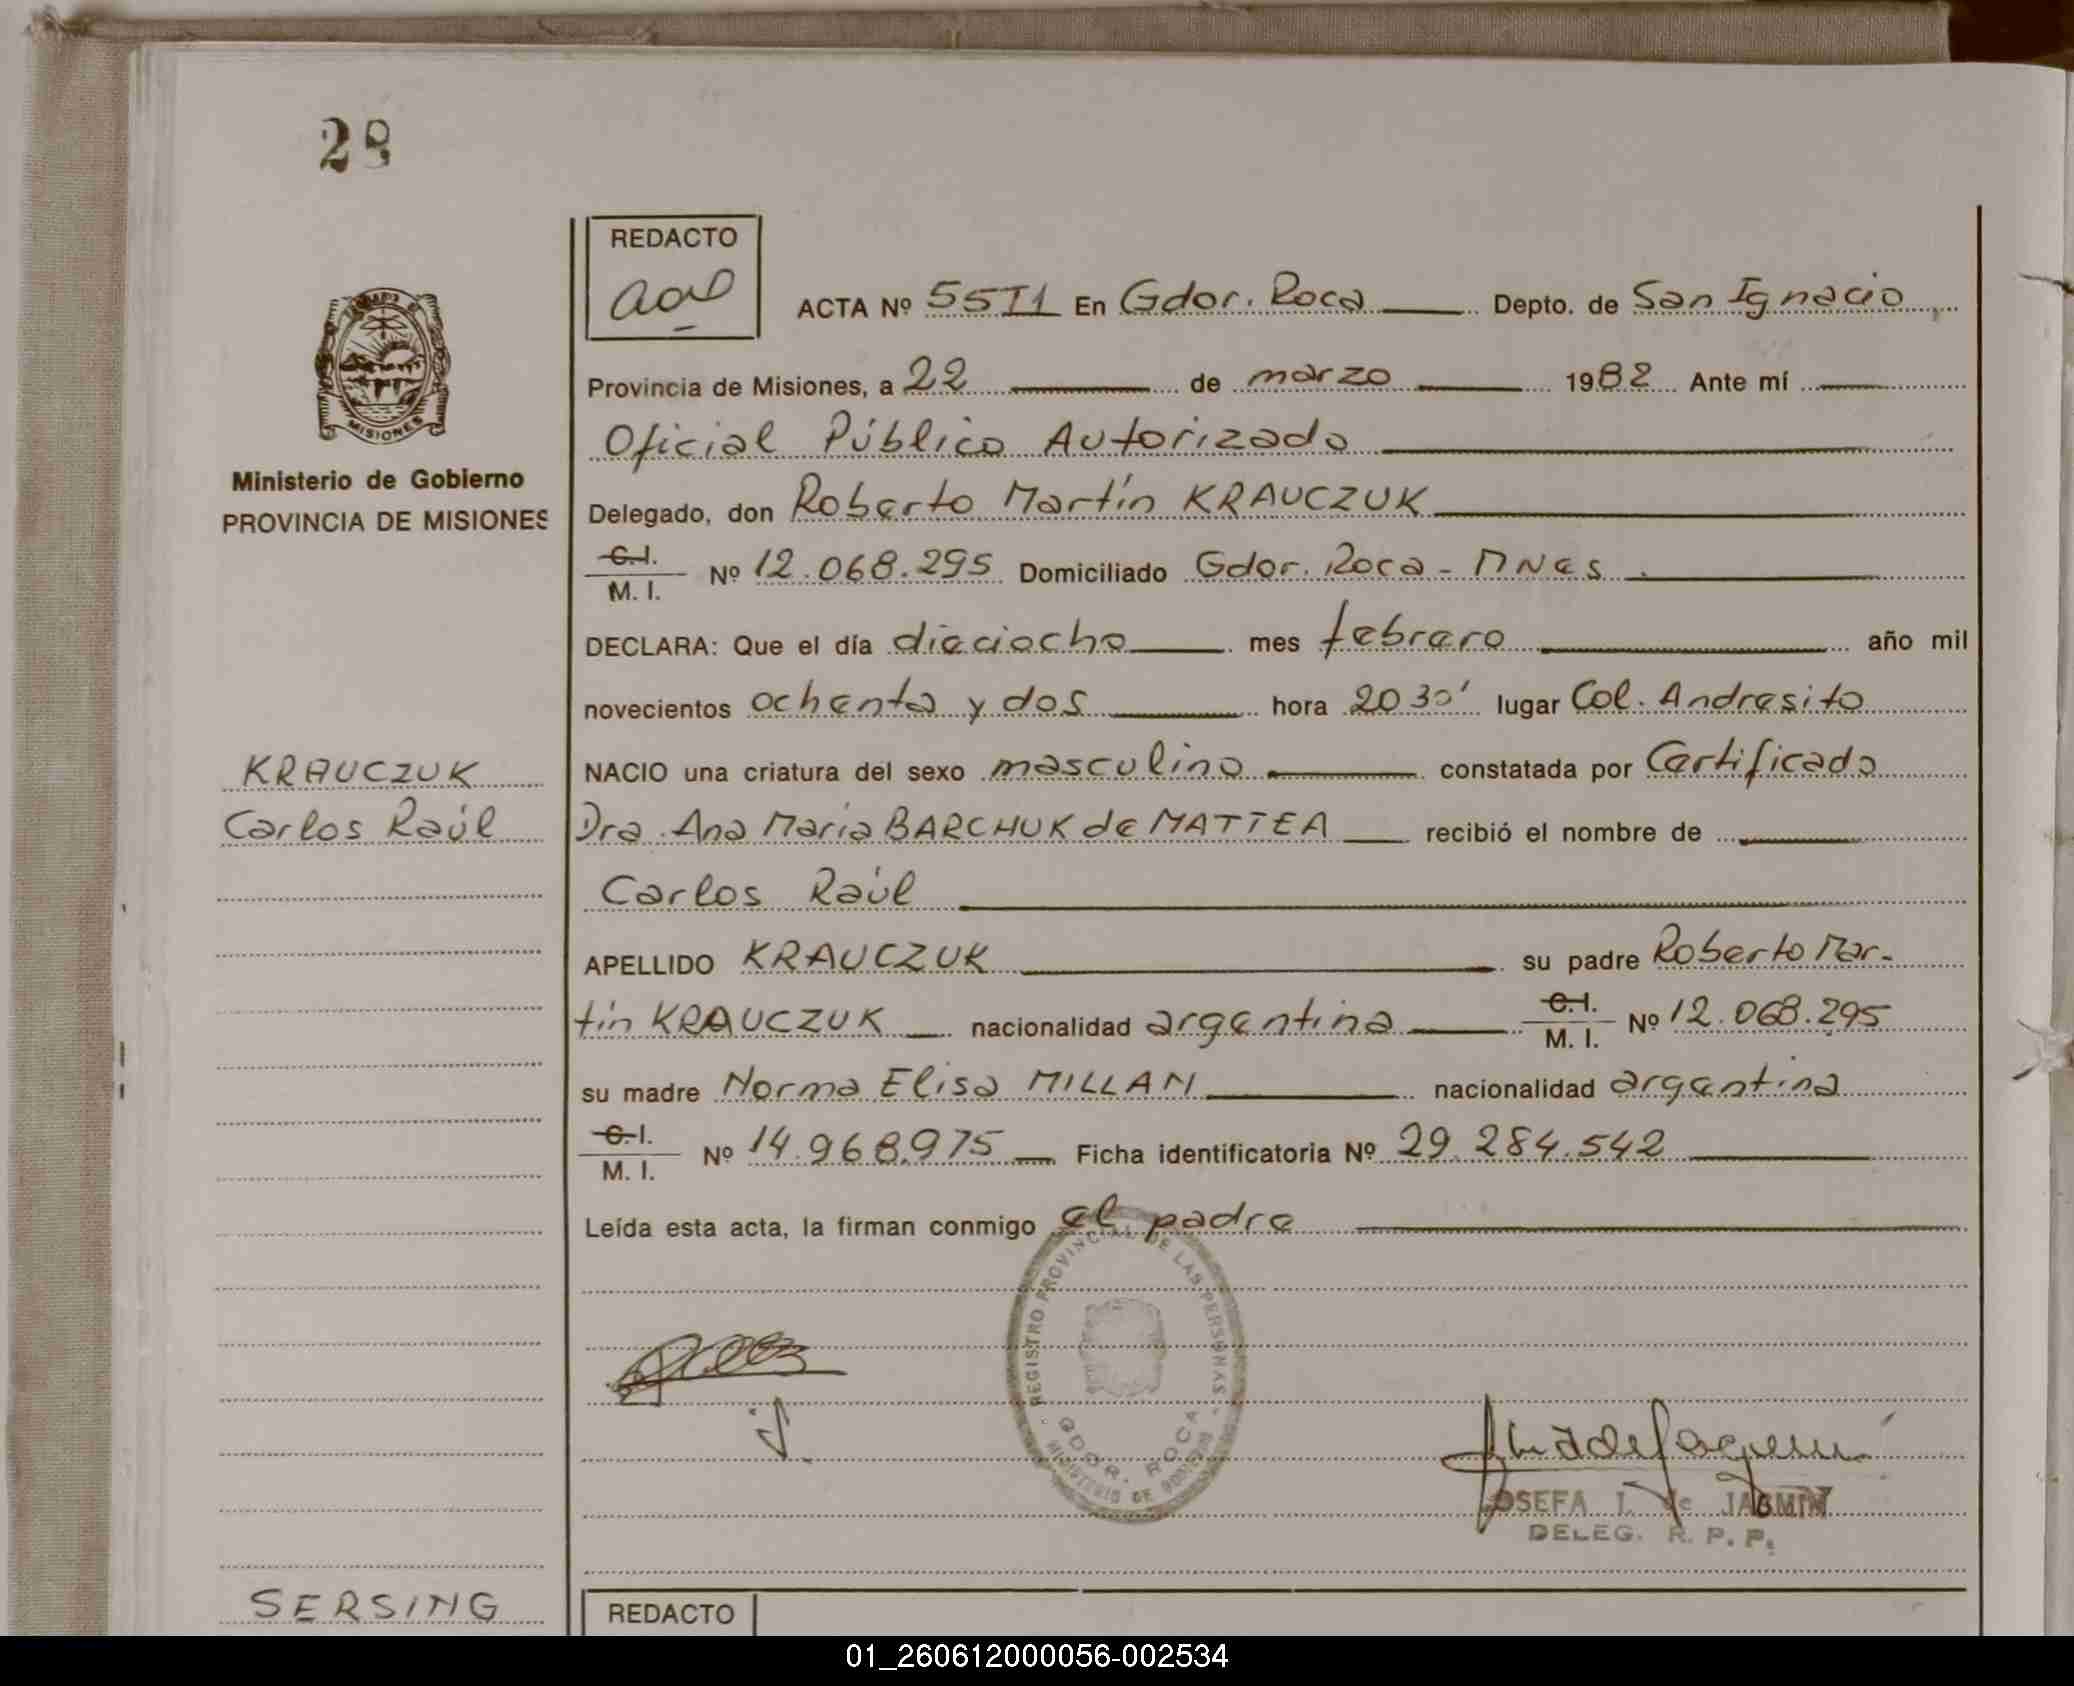 28
REDACTO
ACTA Nº 55T1 En Gdor. Roca Depto. de San Ignacio
Provincia de Misiones, a 22 de marzo 1982 Ante mí
Oficial Público Autorizado
Delegado, don Roberto Martín KRAUCZUK
C.I.
M. I. Nº 12.068.295 Domiciliado Gdor. Roca - MNES
DECLARA: Que el día dieciocho mes febrero año mil
novecientos ochenta y dos hora 20 30' lugar Col. Andresito
NACIO una criatura del sexo masculino constatada por Certificado
Dra. Ana María BARCHUK de MATTEA recibió el nombre de
Carlos Raúl
APELLIDO KRAUCZUK su padre Roberto Mar-
tín KRAUCZUK nacionalidad argentina C.I. M. I. Nº 12.068.295
su madre Norma Elisa MILLAN nacionalidad argentina
C.I.
M. I. Nº 14.968.975 Ficha identificatoria Nº 29.284.542
Leída esta acta, la firman conmigo el padre
REGISTRO PROVINCIAL DE LAS PERSONAS
GDOR. ROCA
MINISTERIO DE GOBIERNO
JOSEFA I. de JASMIN
DELEG. R. P. P.
REDACTO
MISIONES
Ministerio de Gobierno
PROVINCIA DE MISIONES
KRAUCZUK
Carlos Raúl
SERSING
01_260612000056-002534